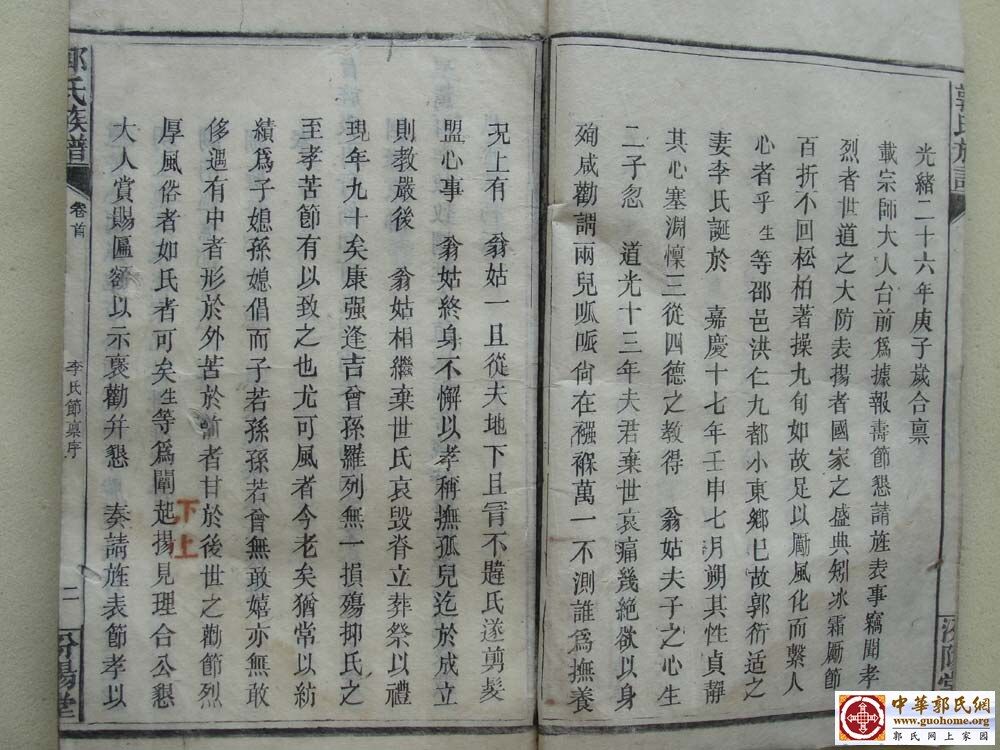 光緒二十六年庚子歲合稟
載宗師大人台前爲據報壽節懇請旌表事竊聞孝
烈者世道之大防表揚者國家之盛典矧冰霜勵節
百折不回松柏著操九旬如故足以勵風化而繫人
心者乎生等邵邑洪仁九都小東鄉已故郭衍适之
妻李氏誕於 嘉慶十七年壬申七月朔其性貞靜
其心塞淵懍三從四德之教得 翁姑夫子之心生
二子忽 道光十三年夫君棄世哀痛幾絕欲以身
殉咸勸謂兩兒呱呱尙在襁褓萬一不測誰爲撫養
況上有 翁姑一旦從夫地下且肎不韙氏遂剪髮
盟心事 翁姑終身不懈以孝稱撫孤兒迄於成立
則教嚴後 翁姑相繼棄世氏哀毀脊立葬祭以禮
現年九十矣康强逢吉曾孫羅列無一損殤抑氏之
至孝苦節有以致之也尤可風者今老矣猶常以紡
績爲子媳孫媳倡而子若孫孫若曾無敢嬉亦無敢
侈遇有中者形於外苦於前者甘於後世之勸節烈
厚風俗者如氏者可矣生等爲闡起揚見理合公懇
下上
大人賞賜匾額以示褒勸幷懇 奏請旌表節孝以
郭氏族譜
卷首
李氏節稟序
二
汾陽堂
中華郭氏網
www.guohome.org
郭氏网上家园